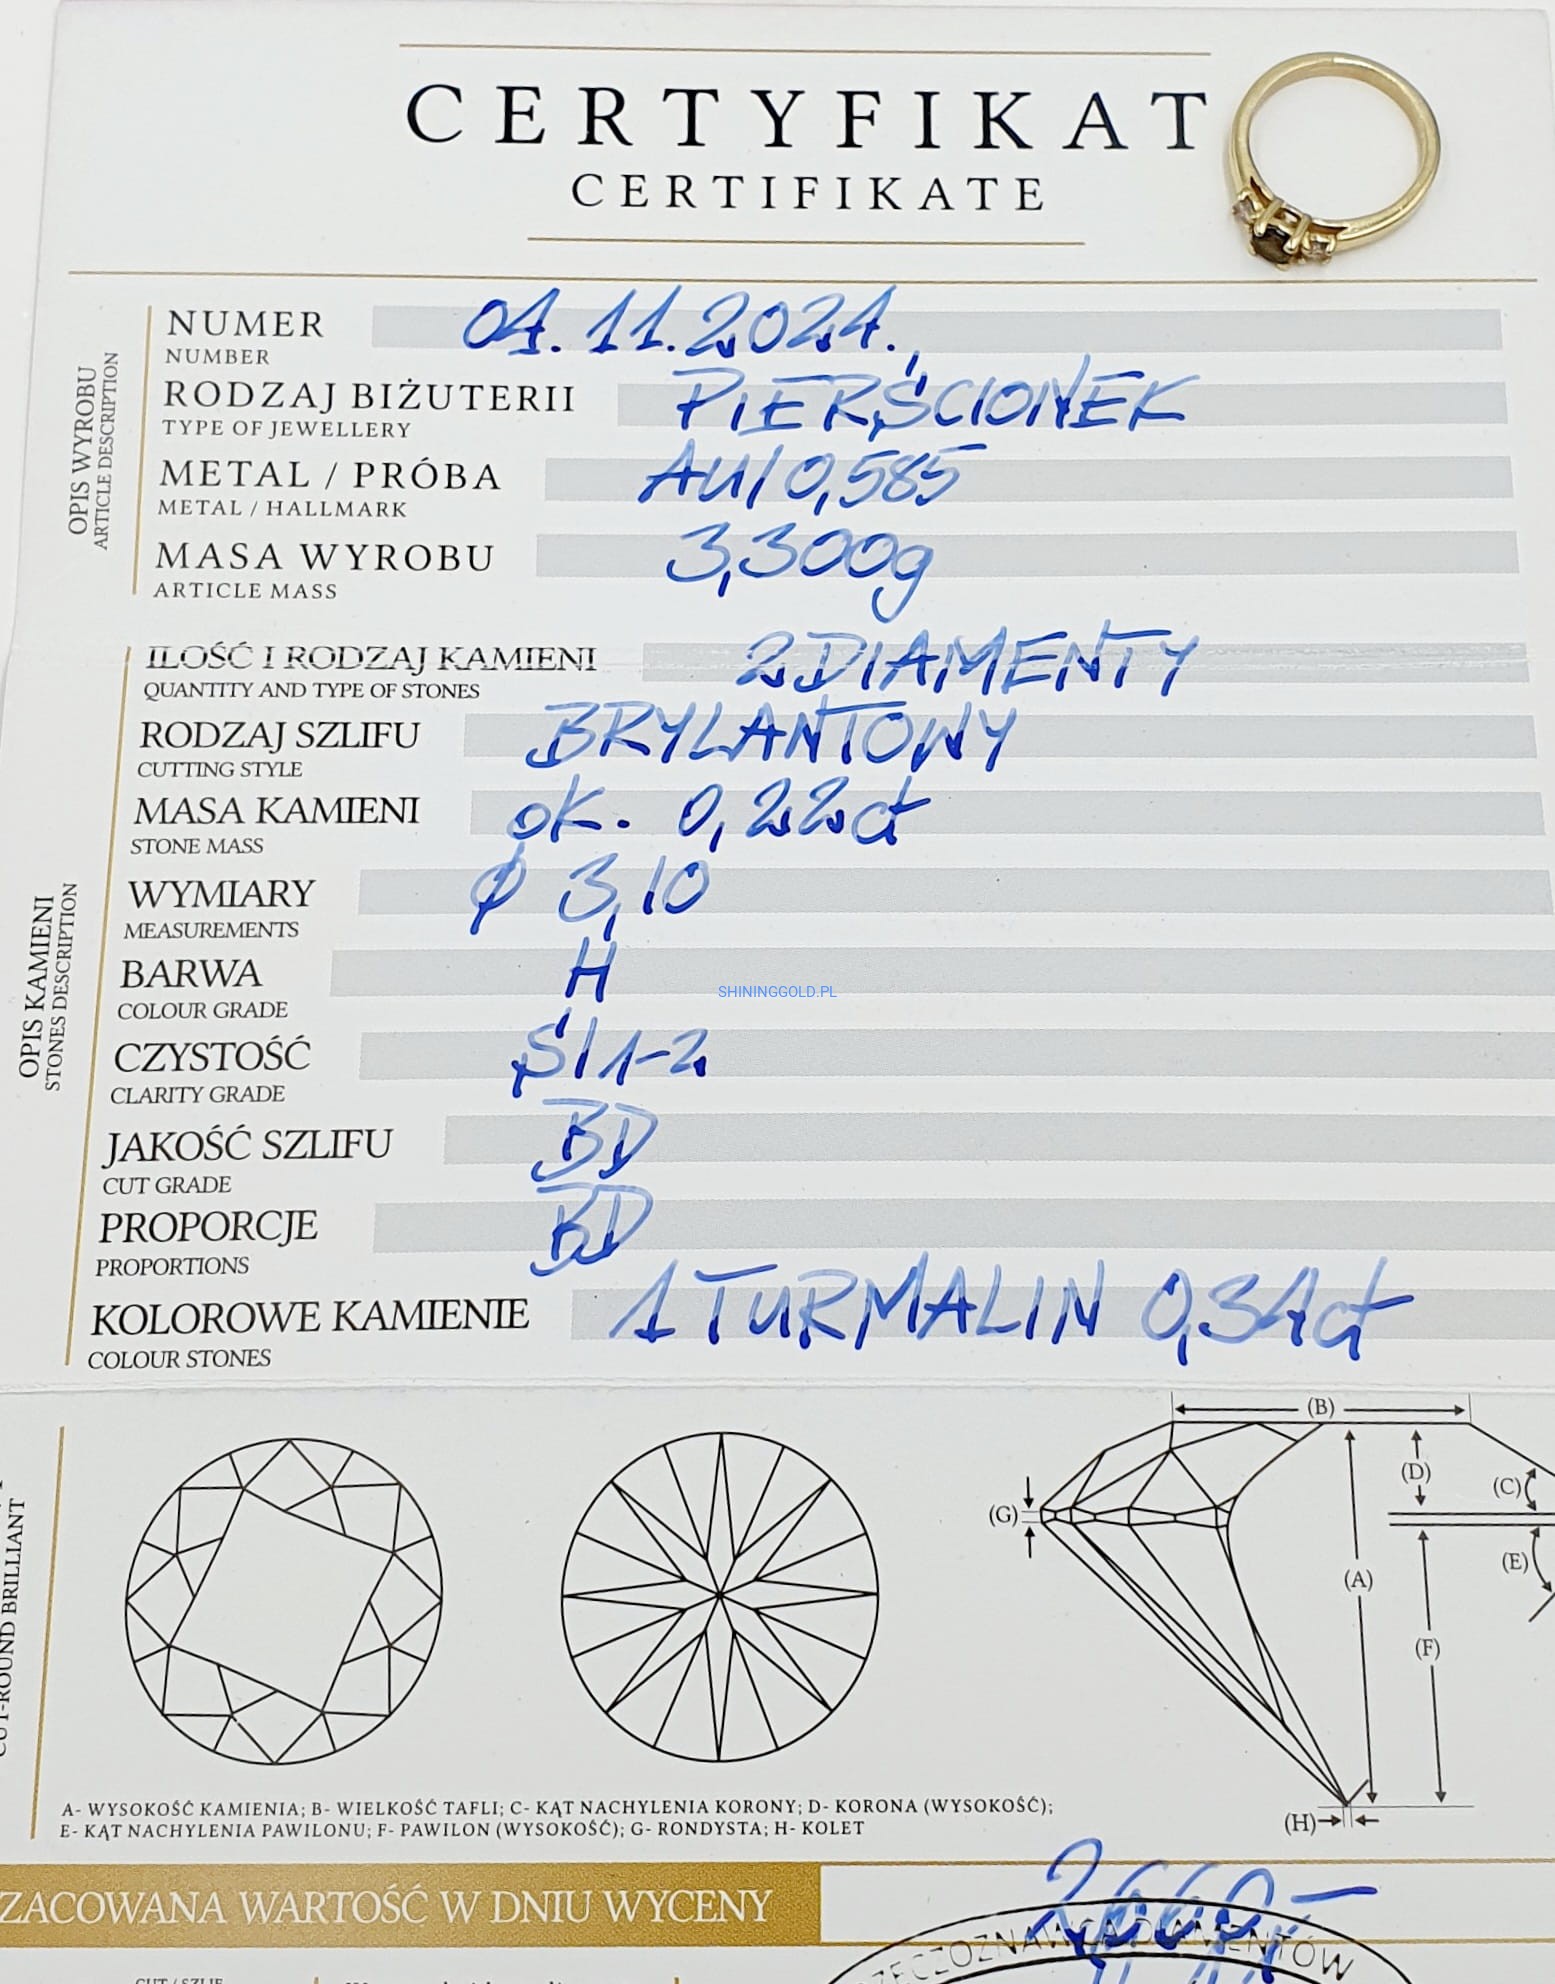 CERTYFIKAT
CERTIFIKATE
OPIS WYROBU
ARTICLE DESCRIPTION
NUMER 04.11.2024.
NUMBER
RODZAJ BIŻUTERII PIERŚCIONEK
TYPE OF JEWELLERY
METAL / PRÓBA AU/0,585
METAL / HALLMARK
MASA WYROBU 3,300g
ARTICLE MASS
OPIS KAMIENI
STONES DESCRIPTION
ILOŚĆ I RODZAJ KAMIENI 2 DIAMENTY
QUANTITY AND TYPE OF STONES
RODZAJ SZLIFU BRYLANTOWY
CUTTING STYLE
MASA KAMIENI ok. 0,22ct
STONE MASS
WYMIARY ø 3,10
MEASUREMENTS
BARWA H
COLOUR GRADE
SHININGGOLD.PL
CZYSTOŚĆ SI1-2
CLARITY GRADE
JAKOŚĆ SZLIFU BD
CUT GRADE
PROPORCJE BD
PROPORTIONS
KOLOROWE KAMIENIE 1 TURMALIN 0,34ct
COLOUR STONES
CUT-ROUND BRILLIANT
(B)
(D)
(C)
(G)
(E)
(A)
(F)
(H)
A- WYSOKOŚĆ KAMIENIA; B- WIELKOŚĆ TAFLI; C- KĄT NACHYLENIA KORONY; D- KORONA (WYSOKOŚĆ);
E- KĄT NACHYLENIA PAWILONU; F- PAWILON (WYSOKOŚĆ); G- RONDYSTA; H- KOLET
ZACOWANA WARTOŚĆ W DNIU WYCENY
RZECZOZNAWCA DIAMENTÓW
CUT / SZLIF